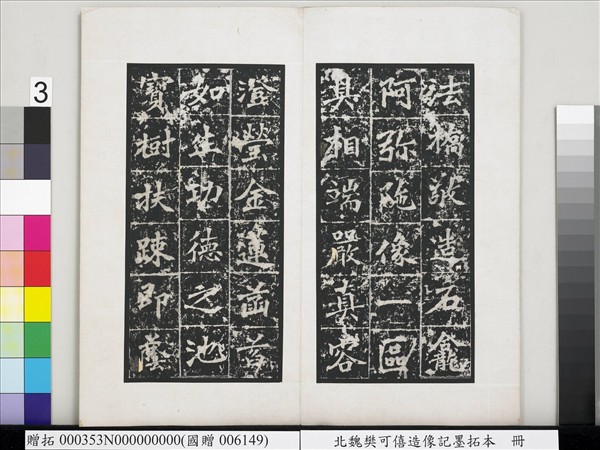 法橋敬造石龕
阿弥陁像一區
其相端嚴真容
澄瑩金蓮菡萏
如生功德之池
寶樹扶踈即
3
贈拓 000353N000000000(國贈 006149)
北魏樊可僖造像記墨拓本 冊